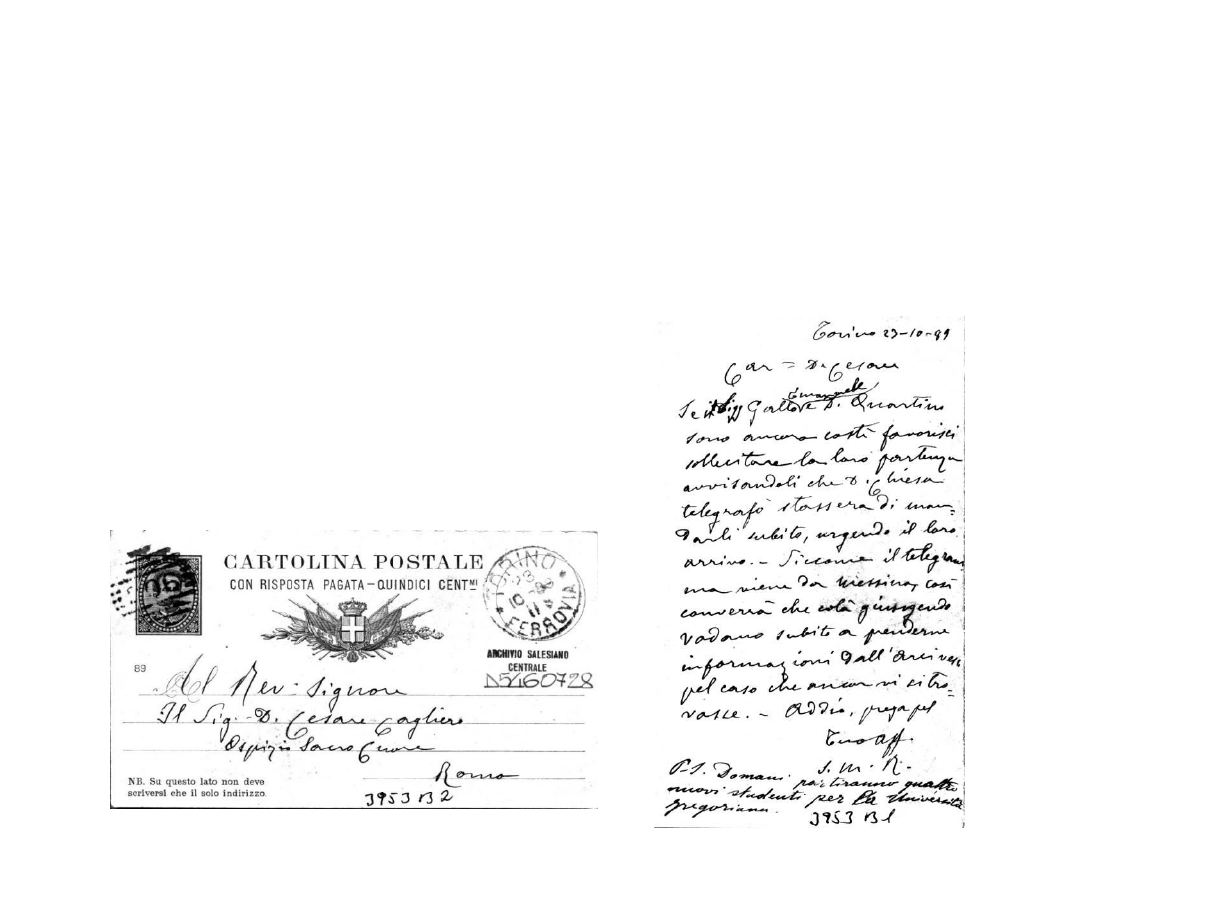 CARTOLINA POSTALE
CON RISPOSTA PAGATA—QUINDICI CENTMI
TORINO
10
FERROVIA
ARCHIVIO SALESIANO
CENTRALE
D5460728
89
Al Rev: Signore
Il Sig. D. Cesare Cagliero
Ospizio Sacro Cuore
Roma
NB. Su questo lato non deve
scriversi che il solo indirizzo.
3953 B 2
Torino 23-10-89
Car = D. Cesare
Emanuele
Se D. Quartino
sono ancora costì favorisci
sollecitare la loro partenza
avvisandoli che D. Chiesa
telegrafò stassera di man=
darli subito, urgendo il loro
arrivo. - Siccome il telegram
ma viene da Messina, così
converrà che colà giungendo
vadano subito a prenderne
informazioni dall'Arcivesc
pel caso che ancor vi si tro=
vasse. - Addio, prega pel
Tuo Aff.
S. M. R.
P.S. Domani partiranno quattro
nuovi studenti per la Università
gregoriana.
3953 B 1